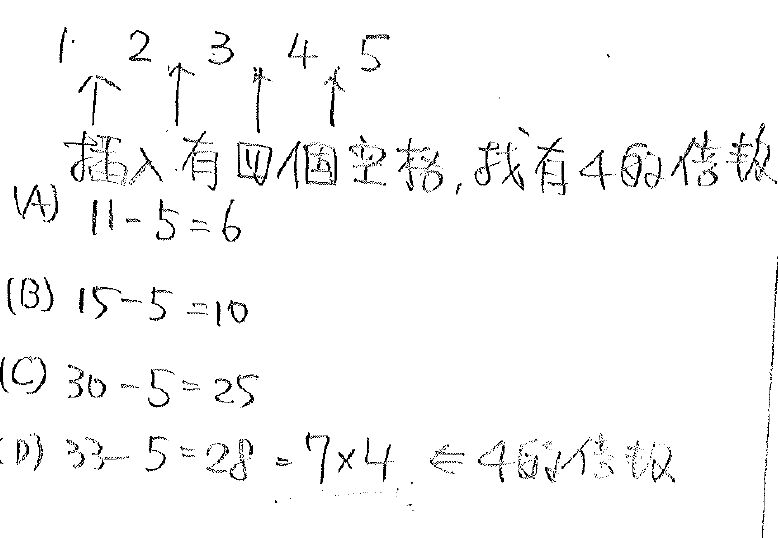 1 2 3 4 5
↑ ↑ ↑ ↑
插入有四個空格,找有4的倍數
(A) 11-5=6
(B) 15-5=10
(C) 30-5=25
(D) 33-5=28=7×4 ⇐4的倍數